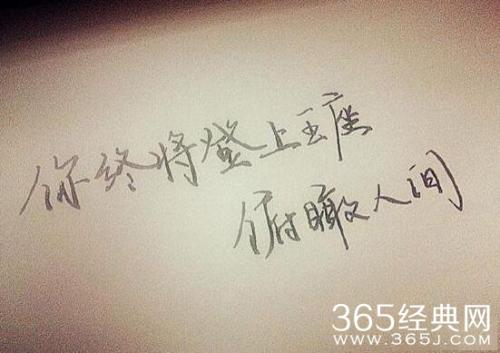 你终将登上王座
俯瞰人间
365经典网
www.365J.com